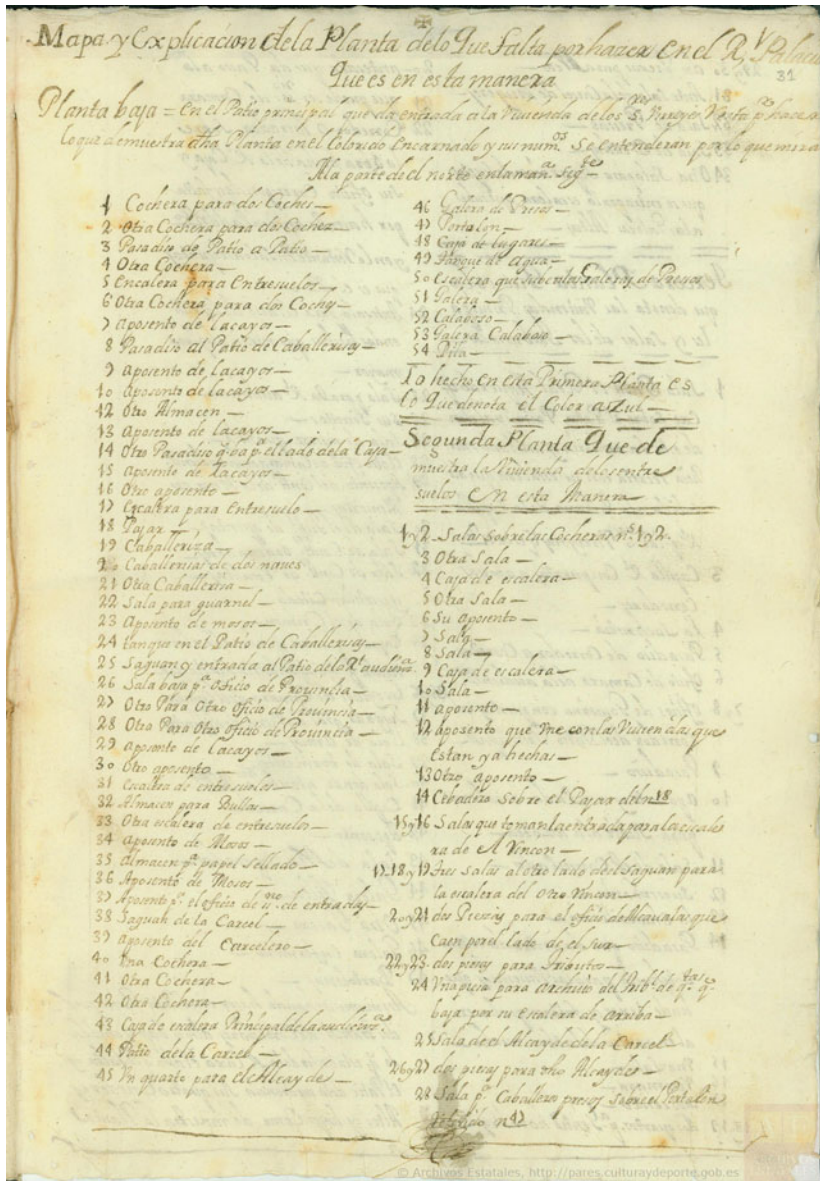 Mapa y Explicacion dela Planta delo Que falta por hazer en el R.l Palacio
31
Que es en esta manera
Planta baja = en el Patio principal que da entrada ala vivienda delos S.res Virreyes
lo que demuestra dha Planta en el Colorido encarnado y sus num.os Se entenderan por lo que mira
Ala parte de el norte en la man.a sig.te
1 Cochera para dos Coches
2 Otra Cochera para dos Coches
3 Pasadiso de Patio a Patio
4 Otra Cochera
5 Encalera para Entresuelos
6 Otra Cochera para dos Coches
7 aposento de lacayos
8 Pasadiso al Patio de Caballerisas
9 aposento de lacayos
10 aposento de lacayos
12 Otro Almacen
13 aposento de lacayos
14 Otro Pasadiso q. ba p.a el lado dela Casa
15 aposento de lacayos
16 Otro aposento
17 escalera para Entresuelo
18 Pajar
19 Caballeriza
20 Caballerisas de dos naves
21 Otra Caballerisa
22 Sala para guarnel
23 aposento de mosos
24 tanque en el Patio de Caballerisas
25 Saguan y entrada al Patio dela R.l audien.a
26 Sala baja p.a oficio de Provincia
27 Otro Para Otro oficio de Provincia
28 Otro Para Otro oficio de Provincia
29 aposento de lacayos
30 Otro aposento
31 escalera de entresuelos
32 Almacen para Bullas
33 Otra escalera de entresuelos
34 aposento de Mosos
35 Almacen p.a papel sellado
36 Aposento de Mosos
37 Aposento p.a el oficio de de entradas
38 Saguan de la Carcel
39 aposento del Carcelero
40 Una Cochera
41 Otra Cochera
42 Otra Cochera
43 Caja de escalera Principal dela audien.a
44 Patio dela Carcel
45 Un quarto para el Alcayde
46 Galera de Presos
47 Portalon
48 Caja de lugares
49 tanque de agua
50 escalera que sube alas Galeras de Presos
51 Galera
52 Calaboso
53 Galera Calaboso
54 Pila
Lo hecho en esta Primera Planta es
lo Que denota el Color azul
Segunda Planta Que de
muestra la Vivienda delos entre
suelos en esta Manera
1y2. Salas sobre las Cocheras n.s 1y2.
3 Otra Sala
4 Caja de escalera
5 Otra Sala
6 Su aposento
7 Sala
8 Sala
9 Caja de escalera
10 Sala
11 aposento
12 aposento que Une con las alas que
estan ya hechas
13 Otro aposento
14 Cebadero Sobre el Pajar del n.18
15y16 Salas que toman la entrada para la escale
ra de el Rincon
17.18y19 tres Salas al otro lado de el saguan para
la escalera del otro Rincon
20y21 dos Piesas para el oficio de alcavalas que
Caen por el lado de el sur
22y23. dos piesas para tributos
24 Una piesa para archivo del trib.l de q.tas q.
baja por su escalera de arriba
25 Sala de el Alcayde dela Carcel
26y27 dos piesas para dho Alcayde
28 Sala p.a Caballeros presos sobre el Portalon
n.47
© Archivos Estatales, http://pares.culturaydeporte.gob.es